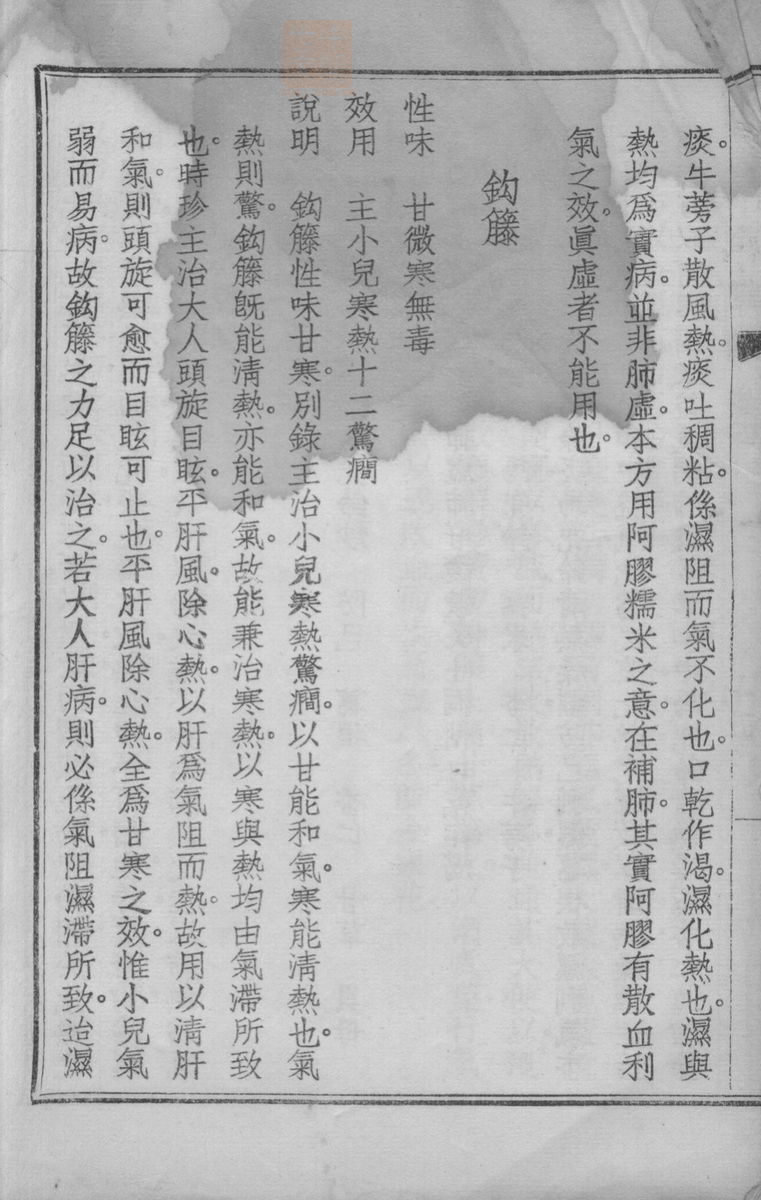 痰。牛蒡子散風熱。痰吐稠粘。係濕阻而氣不化也。口乾作渴。濕化熱也。濕與
熱均爲實病。並非肺虛。本方用阿膠糯米之意。在補肺。其實阿膠有散血利
氣之效。眞虛者不能用也。
鈎籐
性味　甘微寒無毒
效用　主小兒寒熱十二驚癇
說明　鈎籐性味甘寒。別錄主治小兒寒熱驚癇。以甘能和氣。寒能清熱也。氣
熱則驚。鈎籐旣能清熱。亦能和氣。故能兼治寒熱。以寒與熱均由氣滯所致
也。時珍主治大人頭旋目眩。平肝風。除心熱。以肝爲氣阻而熱。故用以清肝
和氣。則頭旋可愈而目眩可止也。平肝風除心熱。全爲甘寒之效。惟小兒氣
弱而易病。故鈎籐之力足以治之。若大人肝病。則必係氣阻濕滯所致。迨濕